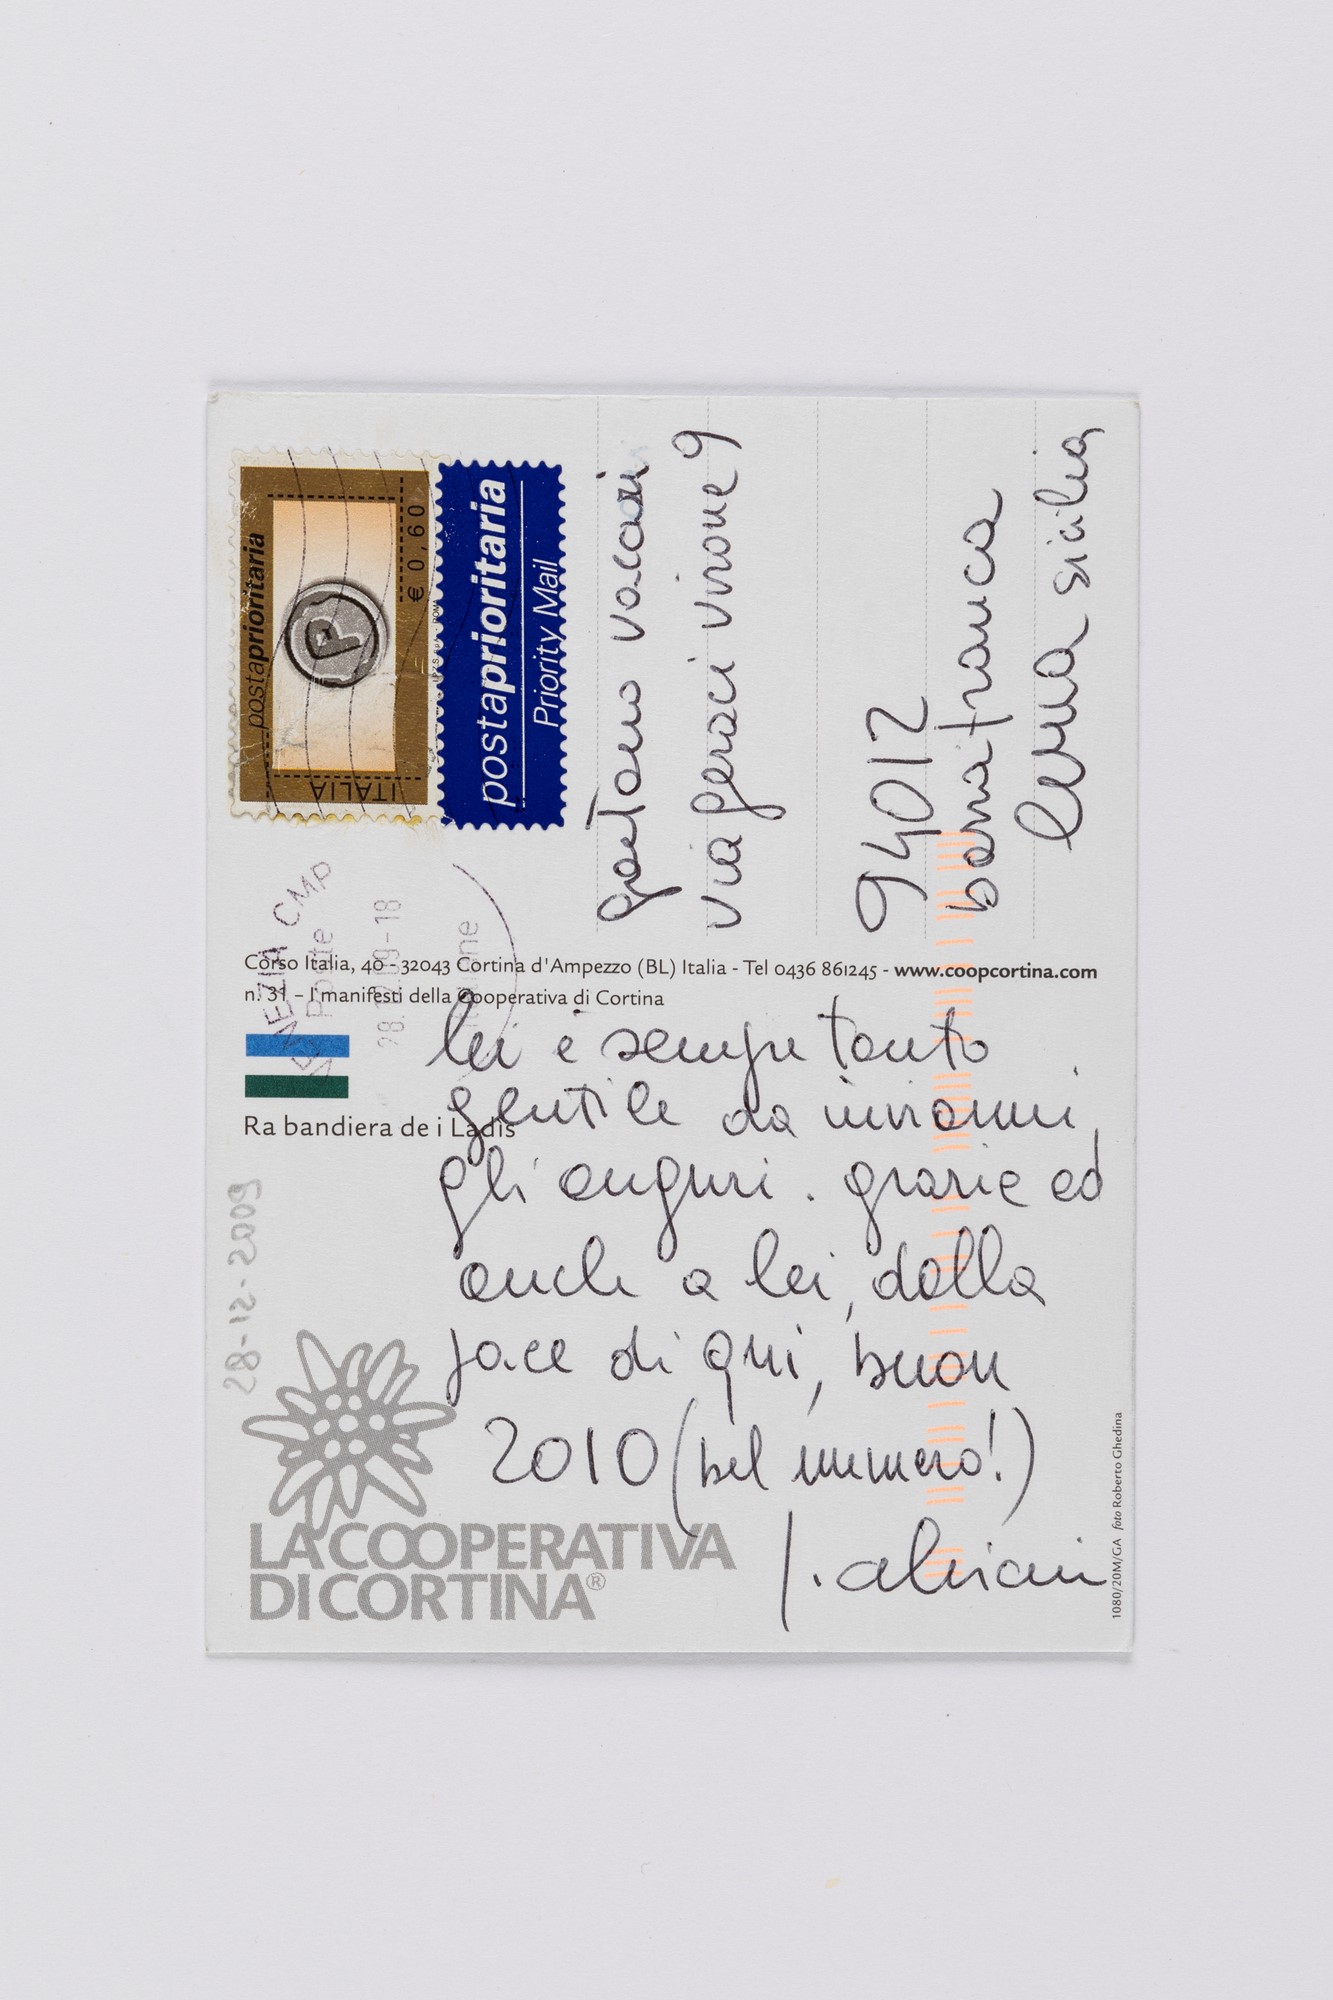 postaprioritaria
€ 0,60
ITALIA
P
postaprioritaria
Priority Mail
gaetano vaccari
via geraci virone 9
94012
barrafranca
enna sicilia
VENEZIA CMP
Poste
28.12.09-18
Corso Italia, 40 - 32043 Cortina d'Ampezzo (BL) Italia - Tel 0436 861245 - www.coopcortina.com
n. 31 – I manifesti della Cooperativa di Cortina
Ra bandiera de i Ladis
28-12-2009
lei è sempre tanto
gentile da inviarmi
gli auguri. grazie ed
anche a lei, dalla
pace di qui, buon
2010 (bel numero!)
LA COOPERATIVA
DI CORTINA®
1080/20M/GA foto Roberto Ghedina